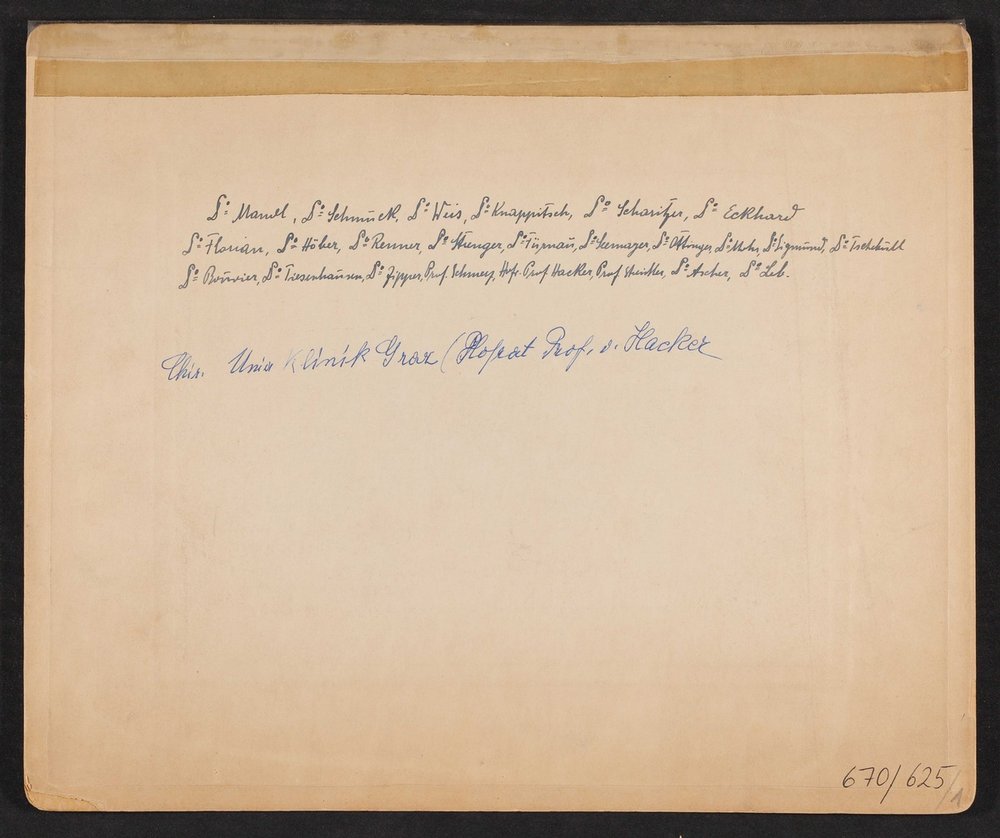 Dr. Mandl, Dr. Schmuck, Dr. Weis, Dr. Knappitsch, Dr. Scharitzer, Dr. Eckhard
Dr. Florian, Dr. Höber, Dr. Renner Dr. Strenger, Dr. Fürnau, Dr. Seemayer, Dr. Mohr, Dr. Sigmund, Dr. Tschebull
Dr. Bouvier, Dr. Tiesenhausen, Dr. Zipper, Prof. Schmerz, Hofr. Prof Hacker, Prof Streißler, Dr. Ascher, Dr. Leb.
Chir. Univ Klinik Graz (Hofrat Prof. v. Hacker
670/625/1